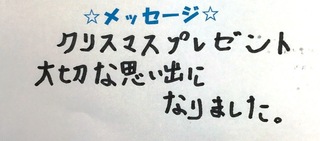 ☆メッセージ☆
クリスマスプレゼント
大切な思い出に
なりました。